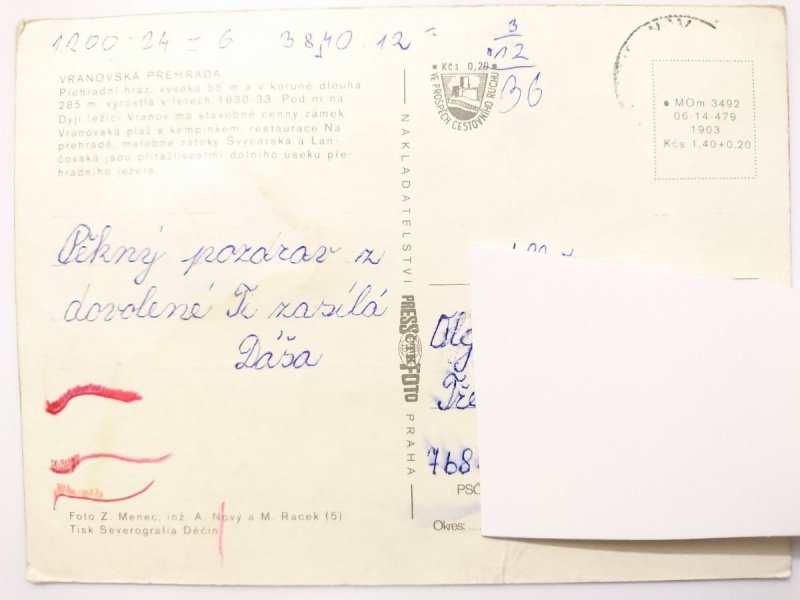 1200:24 = 6 38,40:12 =
3
12
36
VRANOVSKÁ PŘEHRADA
Přehradní hráz, vysoká 55 m a v koruně dlouhá
285 m, vyrostla v letech 1930-33. Pod ní na
Dyji ležící Vranov má stavebně cenný zámek.
Vranovská pláž s kempinkem, restaurace Na
přehradě, malebné zátoky Švýcarská a Lan-
čovská jsou přitažlivostmi dolního úseku pře-
hradního jezera.
Kčs 0,20
VE PROSPĚCH CESTOVNÍHO RUCHU
MOm 3492
06-14-479
1903
Kčs 1,40+0,20
Pěkný pozdrav z
dovolené Ti zasílá
Dáša
NAKLADATELSTVÍ PRESSFOTO PRAHA
ČTK
768
PSČ
Okres:
Foto Z. Menec, inž. A. Nový a M. Racek (5)
Tisk Severografia Děčín